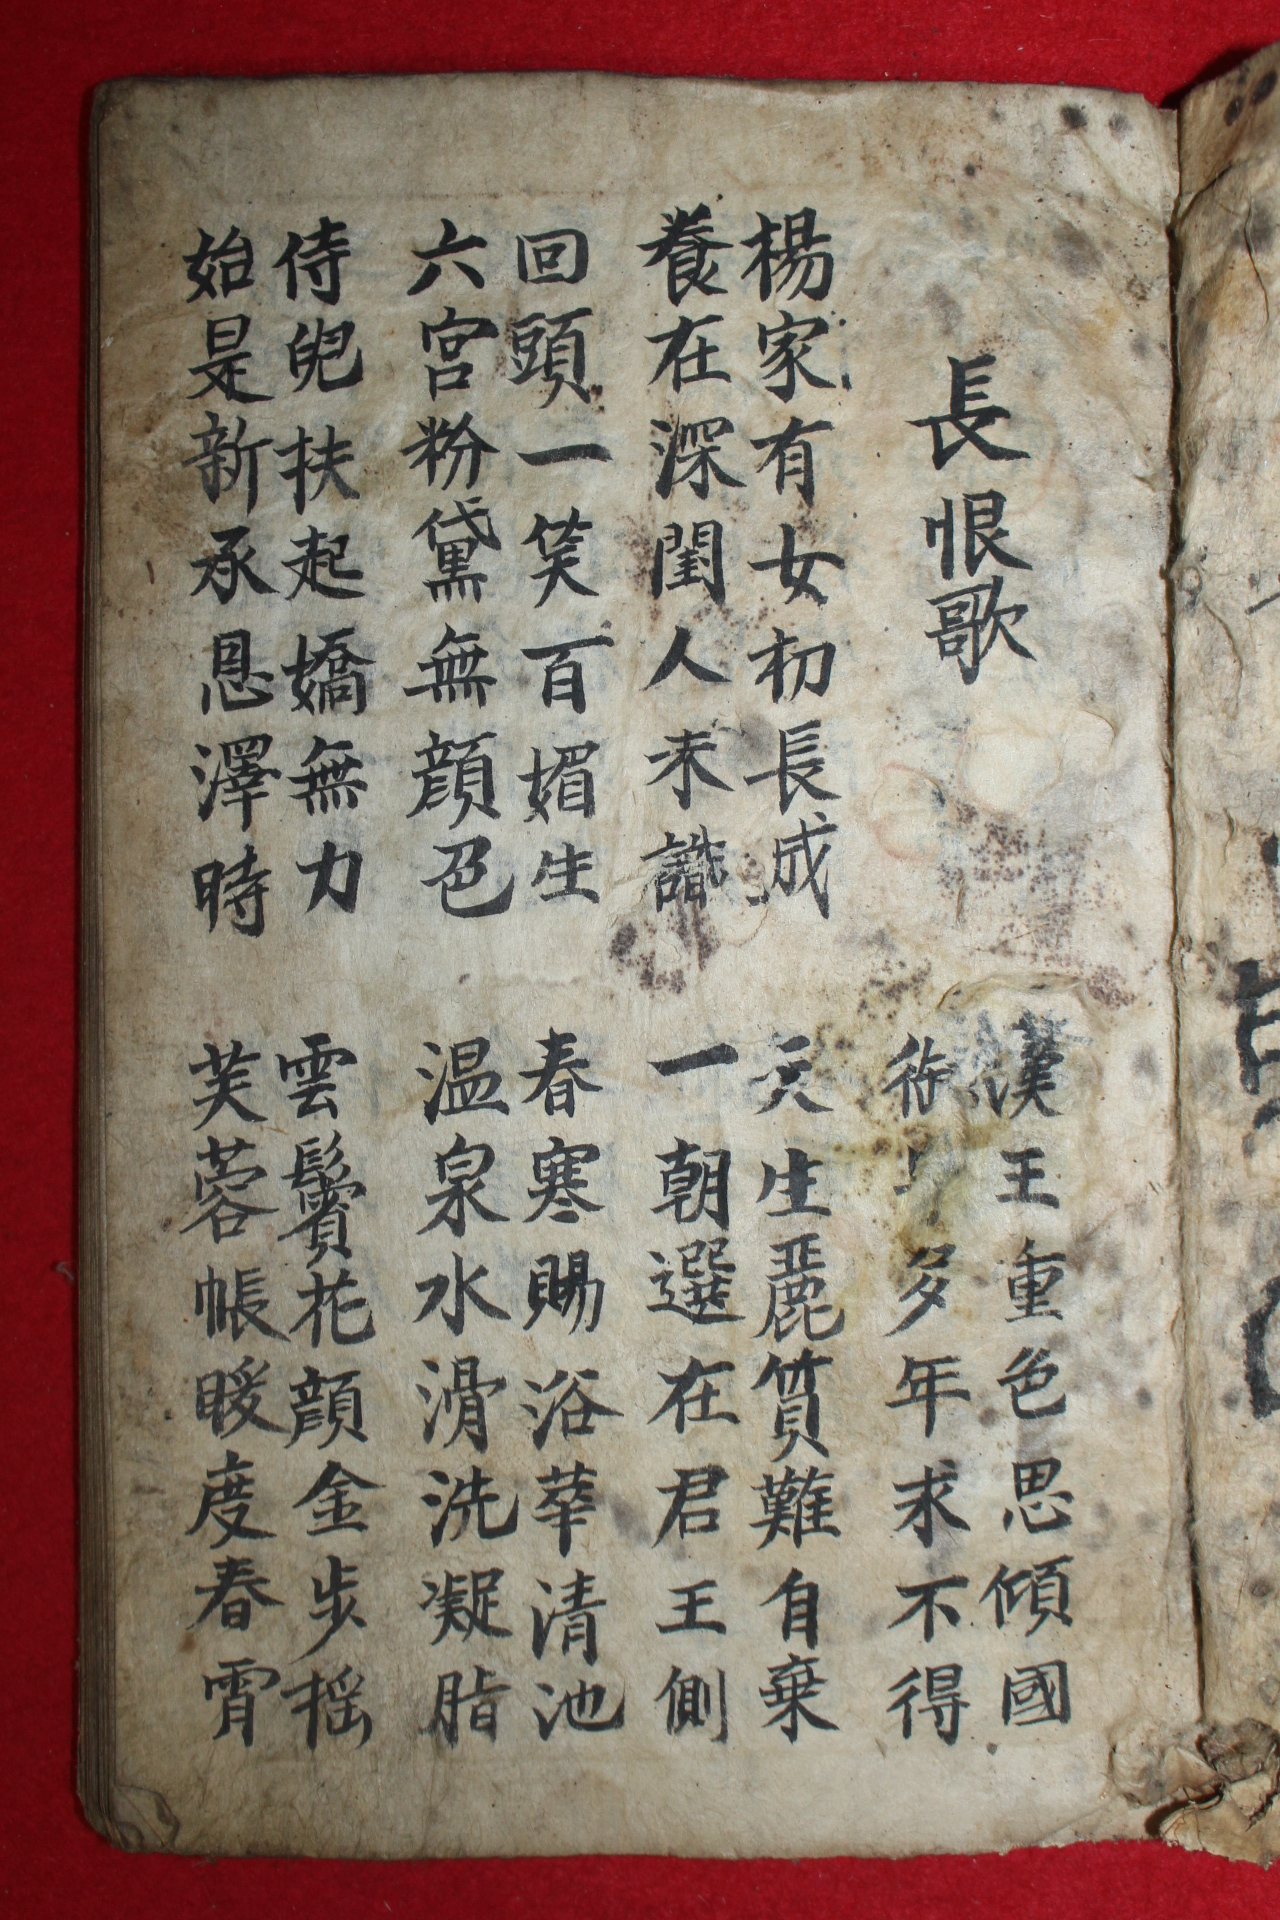 長恨歌
漢王重色思傾國
多年求不得
楊家有女初長成
養在深閨人未識
天生麗質難自棄
一朝選在君王側
回頭一笑百媚生
六宮粉黛無顔色
春寒賜浴華清池
温泉水滑洗凝脂
侍兒扶起嬌無力
始是新承恩澤時
雲鬢花顔金步搖
芙蓉帳暖度春宵